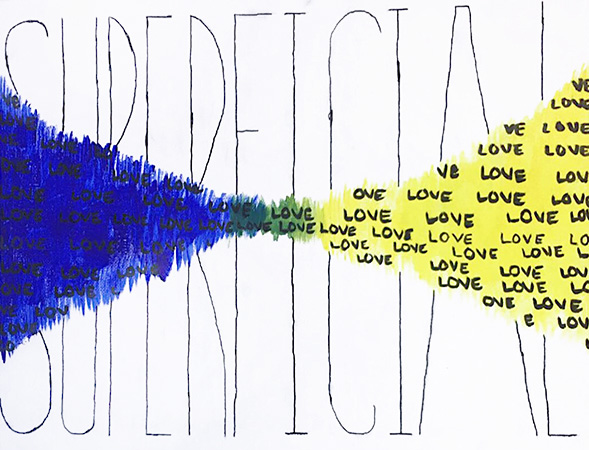 SUPERFICIAL
VE
VE LOVE
LOVE VE LOVE
VE LO LOVE LOVE
OVE LOVE LOVE V8 LOVE LOV
LOVE LOVE LOVE LOVE OVE LOVE LOVE LOVE
LOVE LOVE LOVE LOVE LOVE LOVE LOVE LOVE LO
LOVE LOVE LOVE LOVE LOVE LOVE LOVE LO
LOVE LOVE LOVE LOVE LOVE LOVE L
LOVE LOVE LOVE LOVE LOVE LOVE LO
OVE LOVE LOVE LOVE LO
VE LOV OVE LOVE
LOVE E LOV